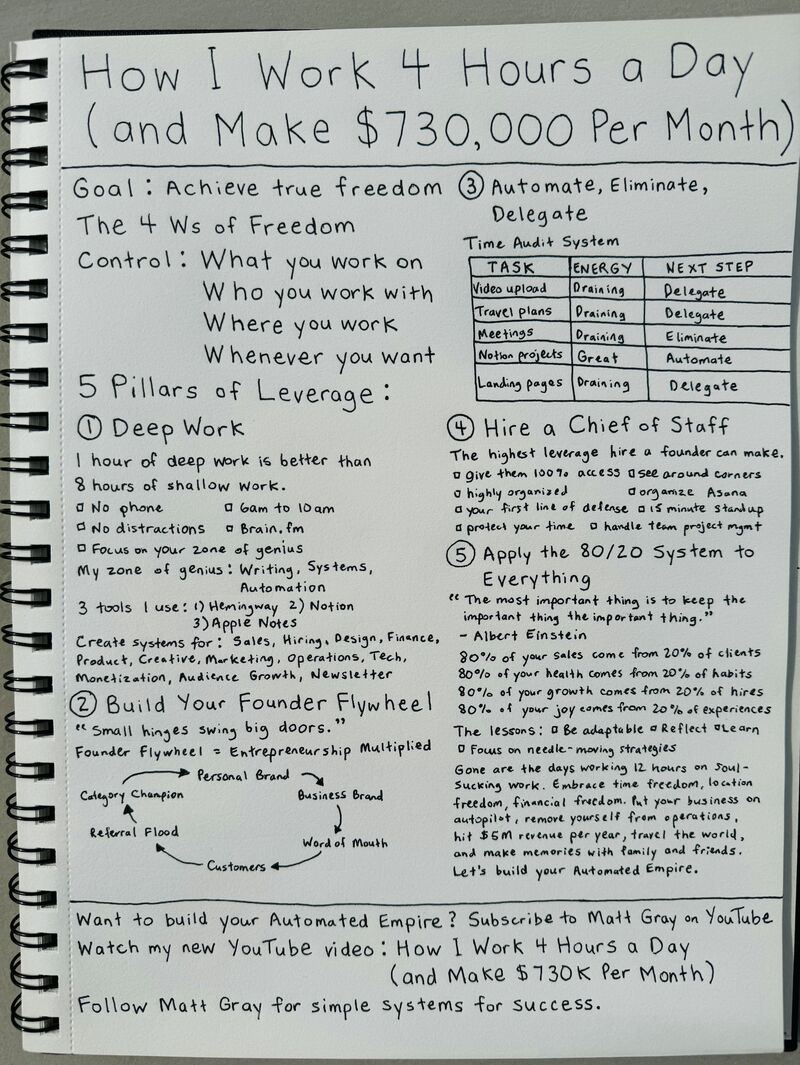 How I Work 4 Hours a Day
(and Make $730,000 Per Month)
Goal: Achieve true freedom
The 4 Ws of Freedom
Control: What you work on
Who you work with
Where you work
Whenever you want
5 Pillars of Leverage:
① Deep Work
1 hour of deep work is better than
8 hours of shallow work.
□ No phone □ 6am to 10am
□ No distractions □ Brain.fm
□ Focus on your zone of genius
My zone of genius: Writing, Systems,
Automation
3 tools I use: 1) Hemingway 2) Notion
3) Apple Notes
Create systems for: Sales, Hiring, Design, Finance,
Product, Creative, Marketing, Operations, Tech,
Monetization, Audience Growth, Newsletter
② Build Your Founder Flywheel
"Small hinges swing big doors."
Founder Flywheel = Entrepreneurship Multiplied
Personal Brand
Business Brand
Word of Mouth
Customers
Referral Flood
Category Champion
③ Automate, Eliminate,
Delegate
Time Audit System
TASK ENERGY NEXT STEP
Video upload Draining Delegate
Travel plans Draining Delegate
Meetings Draining Eliminate
Notion projects Great Automate
Landing pages Draining Delegate
④ Hire a Chief of Staff
The highest leverage hire a founder can make.
□ give them 100% access □ see around corners
□ highly organized □ organize Asana
□ your first line of defense □ 15 minute standup
□ protect your time □ handle team project mgmt
⑤ Apply the 80/20 System to
Everything
"The most important thing is to keep the
important thing the important thing."
- Albert Einstein
80% of your sales come from 20% of clients
80% of your health comes from 20% of habits
80% of your growth comes from 20% of hires
80% of your joy comes from 20% of experiences
The lessons: □ Be adaptable □ Reflect □ Learn
□ Focus on needle-moving strategies
Gone are the days working 12 hours on soul-
sucking work. Embrace time freedom, location
freedom, financial freedom. Put your business on
autopilot, remove yourself from operations,
hit $5M revenue per year, travel the world,
and make memories with family and friends.
Let's build your Automated Empire.
Want to build your Automated Empire? Subscribe to Matt Gray on YouTube
Watch my new YouTube video: How I Work 4 Hours a Day
(and Make $730K Per Month)
Follow Matt Gray for simple systems for success.